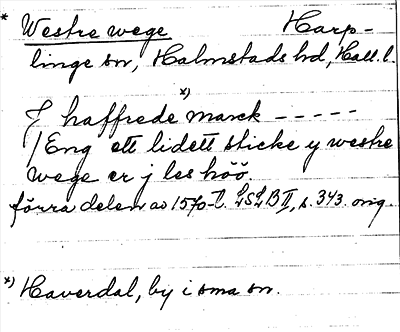 * Westre wege Harp-
linge sn, Halmstads hd, Hall. l.
J haffrede x) marck - - - - -
/ Eng ett lidett sticke y westre
wege er j les höö.
förra delen av 1570-t. LSLB II, s. 343. orig.
x) Haverdal, by i sma sn.